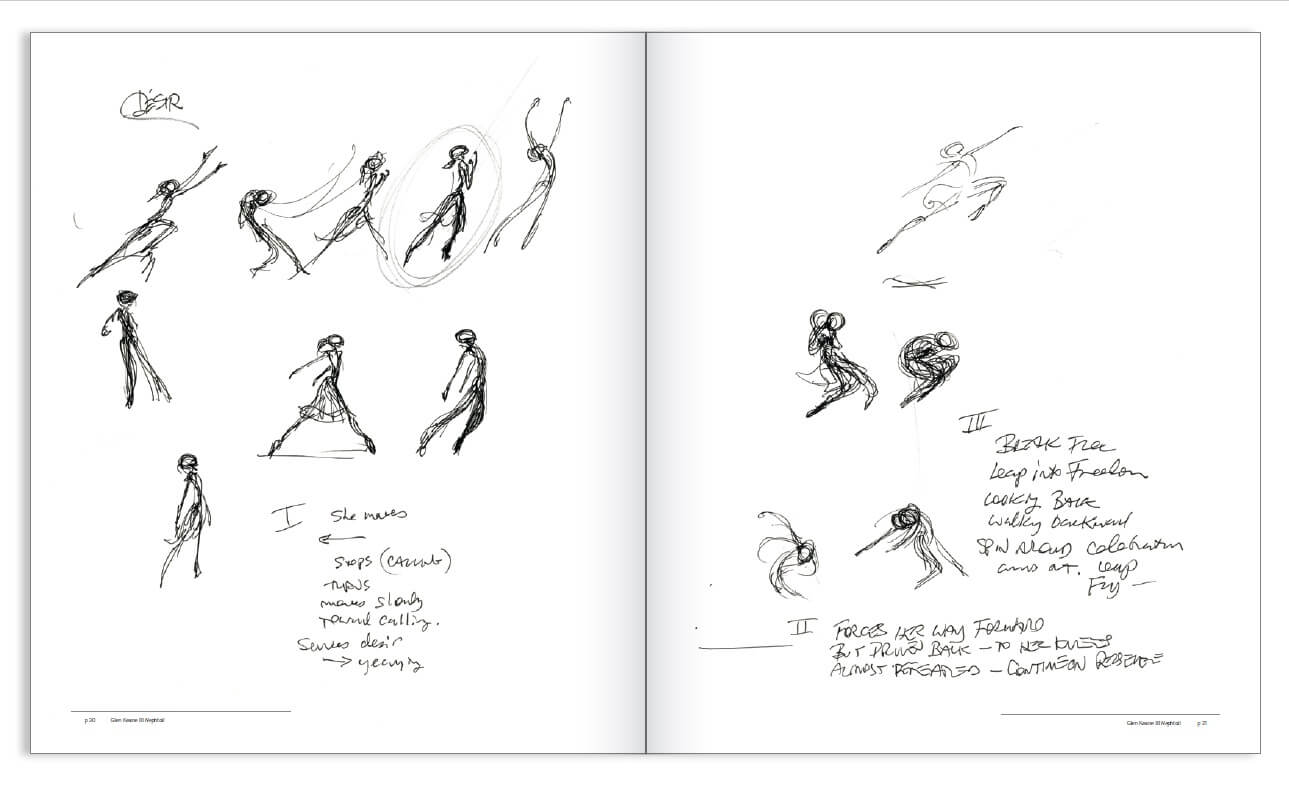 DÉSIR
I She moves
←
STOPS (CALLING)
TURNS
moves slowly
toward calling.
Senses desir
→ yearning
p 20 Glen Keane III Nephtali
III
BREAK Free
Leap into Freedom
LOOKING BACK
walking backward
SPIN around celebration
arms out. Leap
Fly —
II FORCES HER WAY FORWARD
BUT DRIVEN BACK — TO HER KNEES
ALMOST DEFEATED — CONTINUE ON
Glen Keane III Nephtali p 21